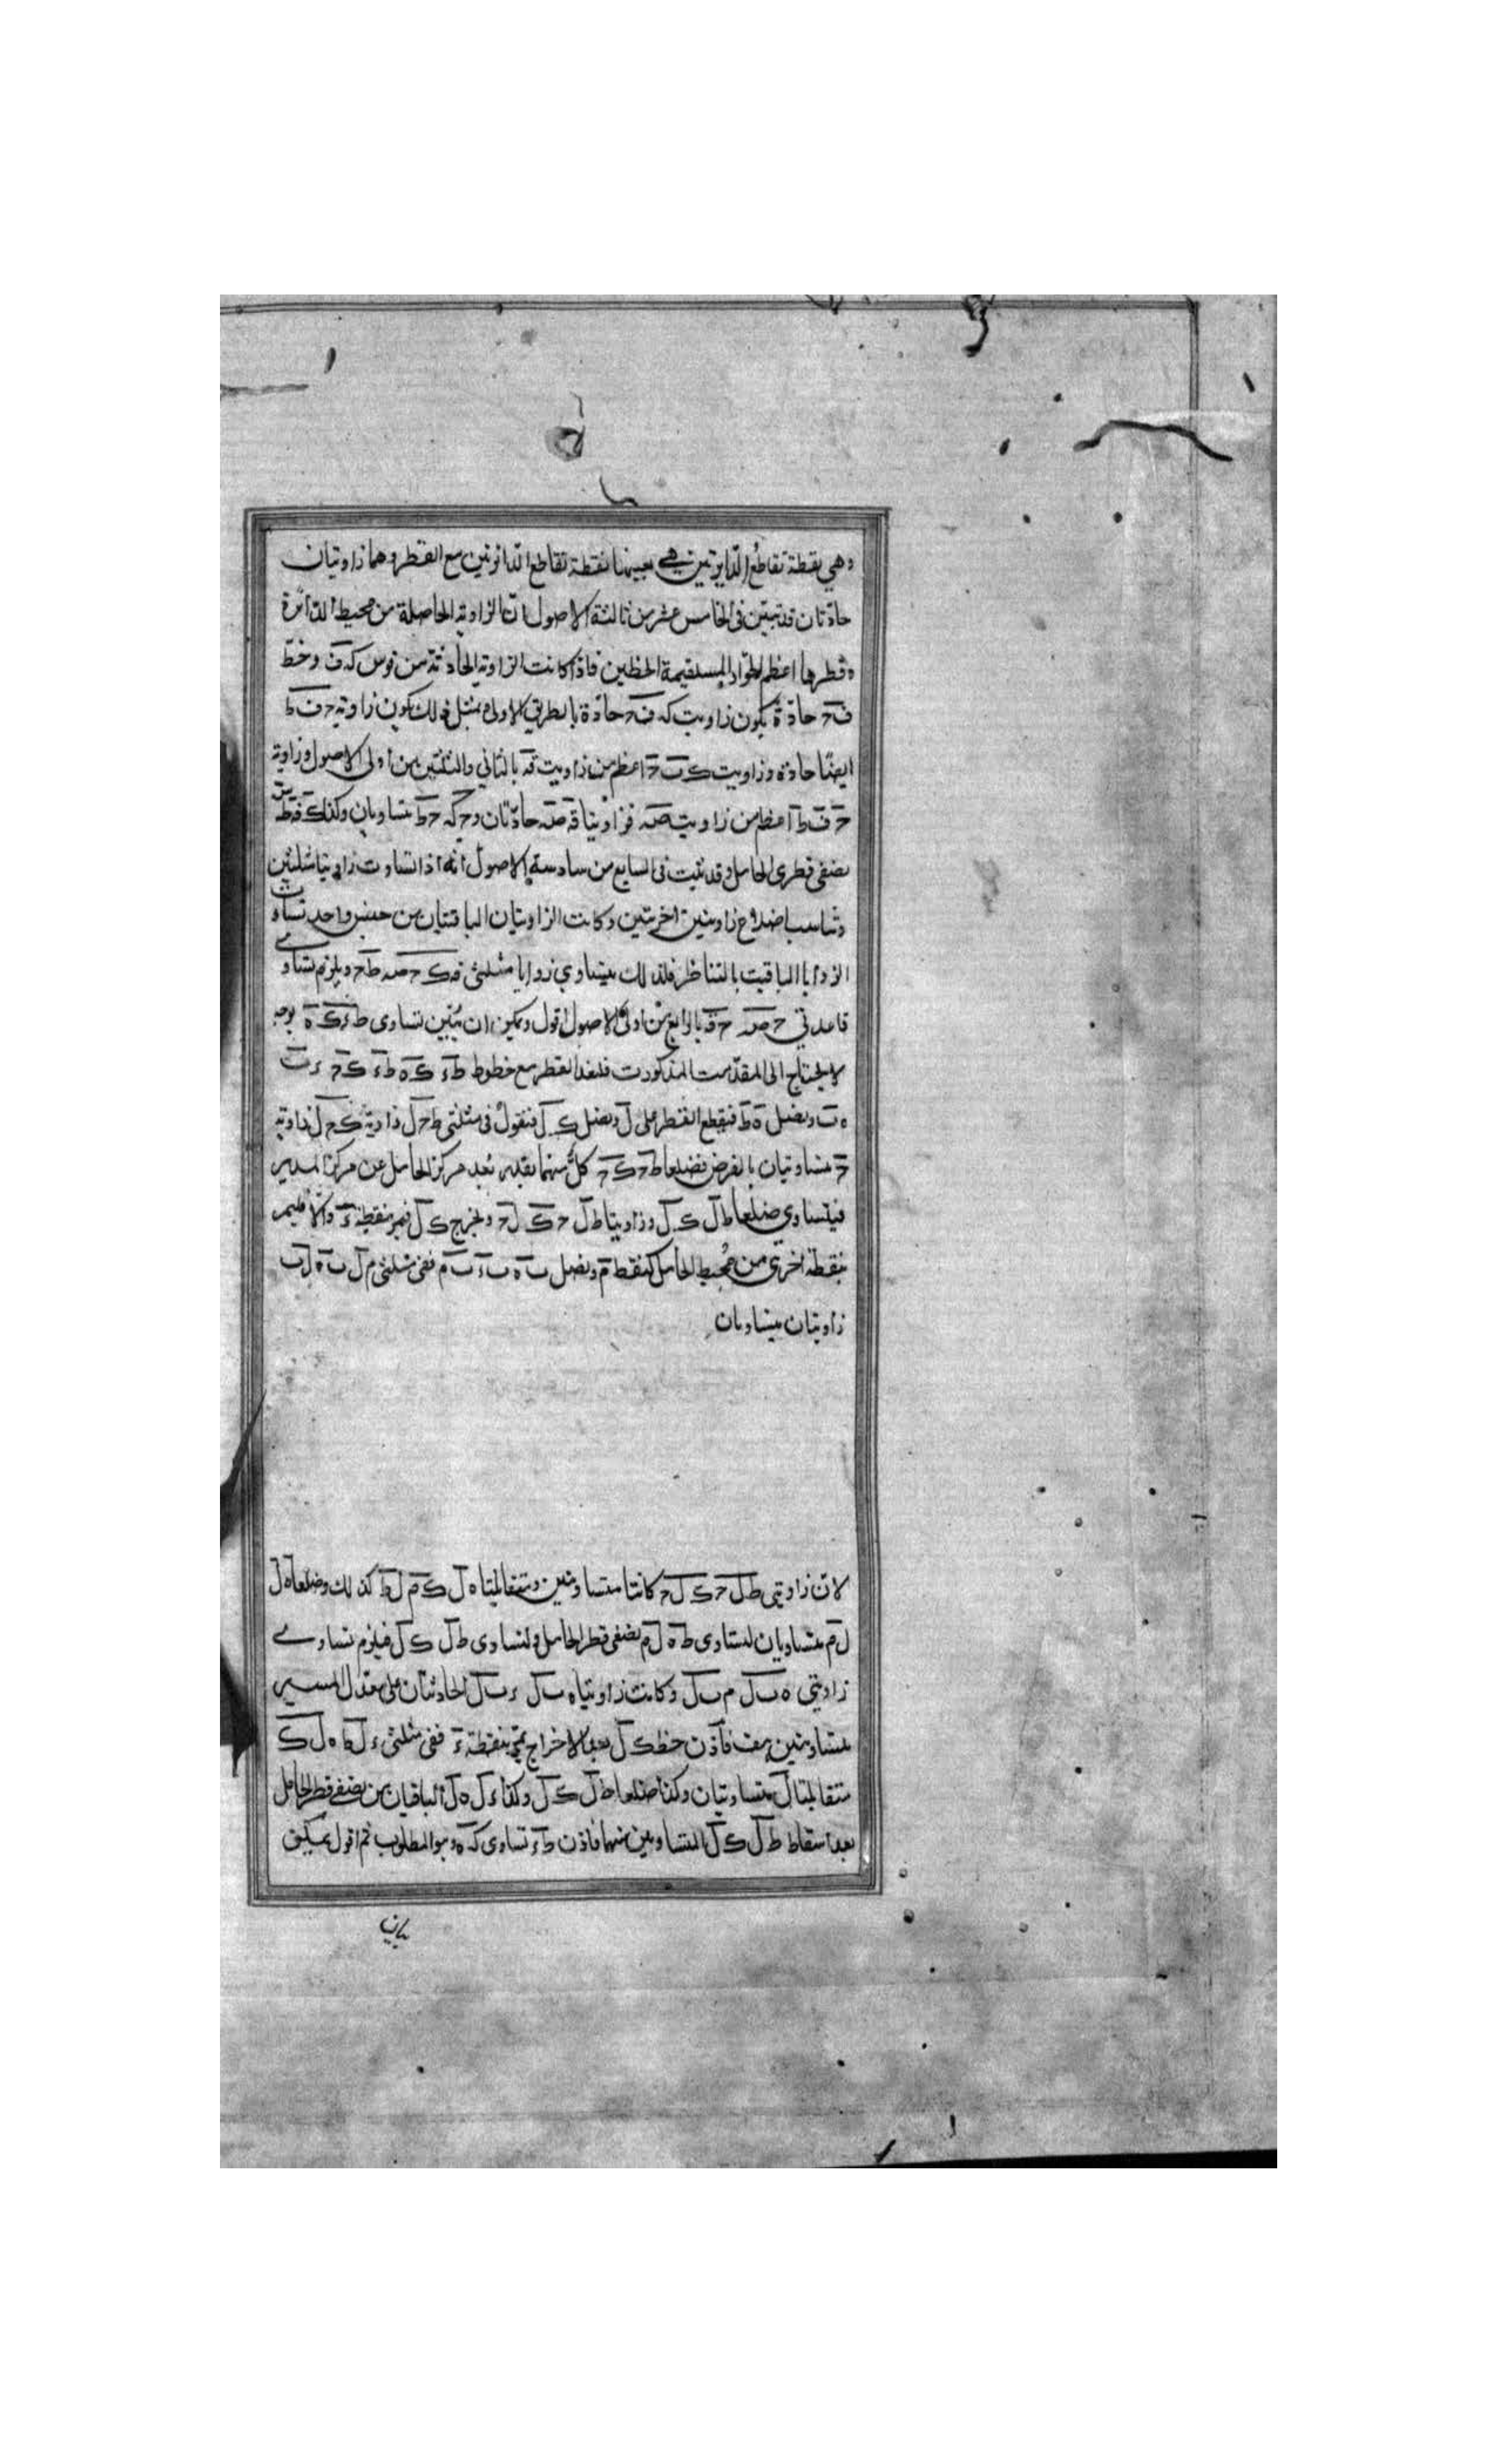 وهي نقطة تقاطع الدايرتين هي بعينها نقطة تقاطع الدائرتين مع القطر وهما زاويتان
حادتان قد تبين في الخامس عشر من ثالثة الاصول ان الزاوية الحاصلة من محيط الدائرة
وقطرها اعظم الحواد المستقيمة الخطين فاذا كانت الزاوية الحادثة من قوس كه ف وخط
ف ح حادة يكون زاوية كه ف ح حادة بالطريق الاولى وبمثل ذلك يكون زاوية ح ف ط
ايضا حادة وزاوية ك ف ح اعظم من زاوية قه بالثاني والثلثين من اولى الاصول وزاوية
ح ف ط اعظم من زاوية صه فزاويتا قه صه حادتان و ح كه ح ط متساويان وكذلك
نصفي قطري الحامل وقد تثبت في السابع من سادسة الاصول انه اذا تساوت زاويتا مثلثين
وتناسب اضلاع زاويتين اخريين وكانت الزاويتان الباقيتان من جنس واحد تساوت
الزوايا الباقية بالتناظر فلذلك يتساوي زوايا مثلثي قه ك ح صه ط ح ويلزم تساوي
قاعدتي ح صه ح قه بالرابع من اولى الاصول اقول ويمكن ان يبين تساوى ط ء ك ه بوجه
لا يحتاج الى المقدمت المذكورت فلنعد القطر مع خطوط ط ء ك ه ط ء ك ح ء ب
ه ب ونصل ه ط فيقطع القطر على ل ونصل ك ل فنقول في مثلثي ط ح ل زاوية ك ح ل زاوية
ح متساويتان بالفرض فضلعا ط ح ك ح كل منهما بقدر بعد مركز الحامل عن مركز المدير
فيتساوي ضلعا ط ل ك ل وزاويتا ط ل ح ك ل ح ونخرج ك ل فيمر بنقطة ء والا فليمر
بنقطة اخرى من محيط الحامل كنقطة م ونصل ب ه ب ء ب م ففي مثلثي م ل ب ه ل ب
زاويتان متساويتان
لان زاويتي ط ل ح ك ل ح كانتا متساويتين ومتقابلتا ه ل ك م ل ط كذلك وضلعا ه ل
ل م متساويان لتساوى ط ه ل م نصفي قطر الحامل ولتساوى ط ل ك ل فيلزم تساوي
زاويتي ه ب ل م ب ل وكانت زاويتا ه ب ل ء ب ل الحادثتان على معدل المسير
متساويتين هف فاذن خط ك ل بعد الاخراج يمر بنقطة ء ففي مثلثي ء ل ط ه ل ك
متقابلتا ل متساويتان وكذا ضلعا ط ل ك ل وكذا ء ل ه ل الباقيان من نصفي قطر الحامل
بعد اسقاط ط ل ك ل المتساويين منهما فاذن ط ء تساوى كه ه وهو المطلوب ثم اقول يمكن
بيان